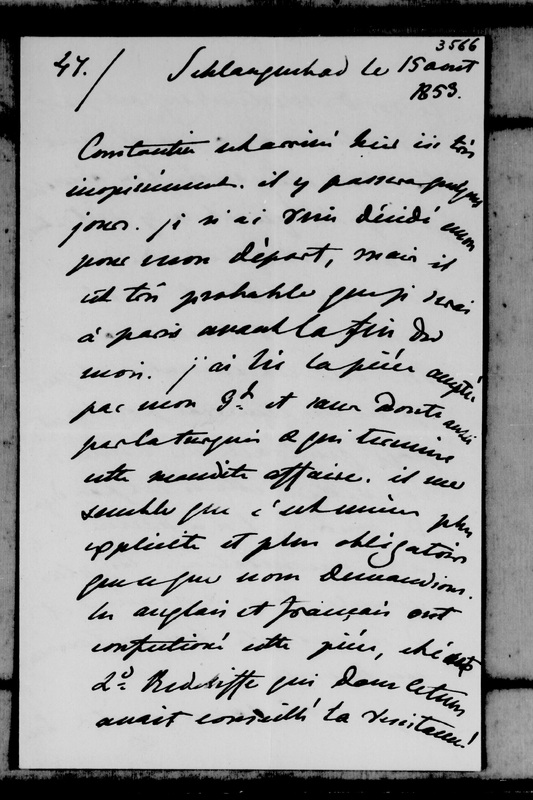 3566
47./ Schlangenbad le 15 aout
1853.
Constantin est arrivé hier ici très
inopinément. il y passera quelques
jours. je n'ai rien décidé encore
pour mon départ, mais il
est très probable que je serai
à paris avant la fin du
mois. j'ai lu la pièce acceptée
par mon g^d et sans doute aussi
par la turquie & qui termine
cette maudite affaire. il me
semble que c'est même plus
explicite et plus obligatoire
que ce que nous demandions.
les anglais et français ont
confectionné cette pièce,
L^d. Redcliffe qui dans le tems
avait conseillé la resistance!